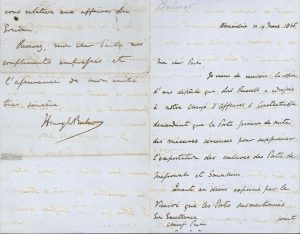 Alexandrie le 10 Mars 1865
Mon cher Pacha
Je viens de recevoir la copie
d'une dépêche que Lord Russell a adressée
à notre Chargé d'Affaires à Constantinople
demandant que la Porte prenne de suite
des mesures sérieuses pour supprimer
l'exportation des esclaves des Ports de
Massowah et Souakin.
Quant au désir exprimé par le
Viceroi que les Ports susmentionnés
Son Excellence
Pacha
soient
vous relative aux affaires du
Soudan.
Recevez, mon cher Pacha mes
compliments empressés et
l'assurance de mon amitié
très sincère
Henry L Bulwer